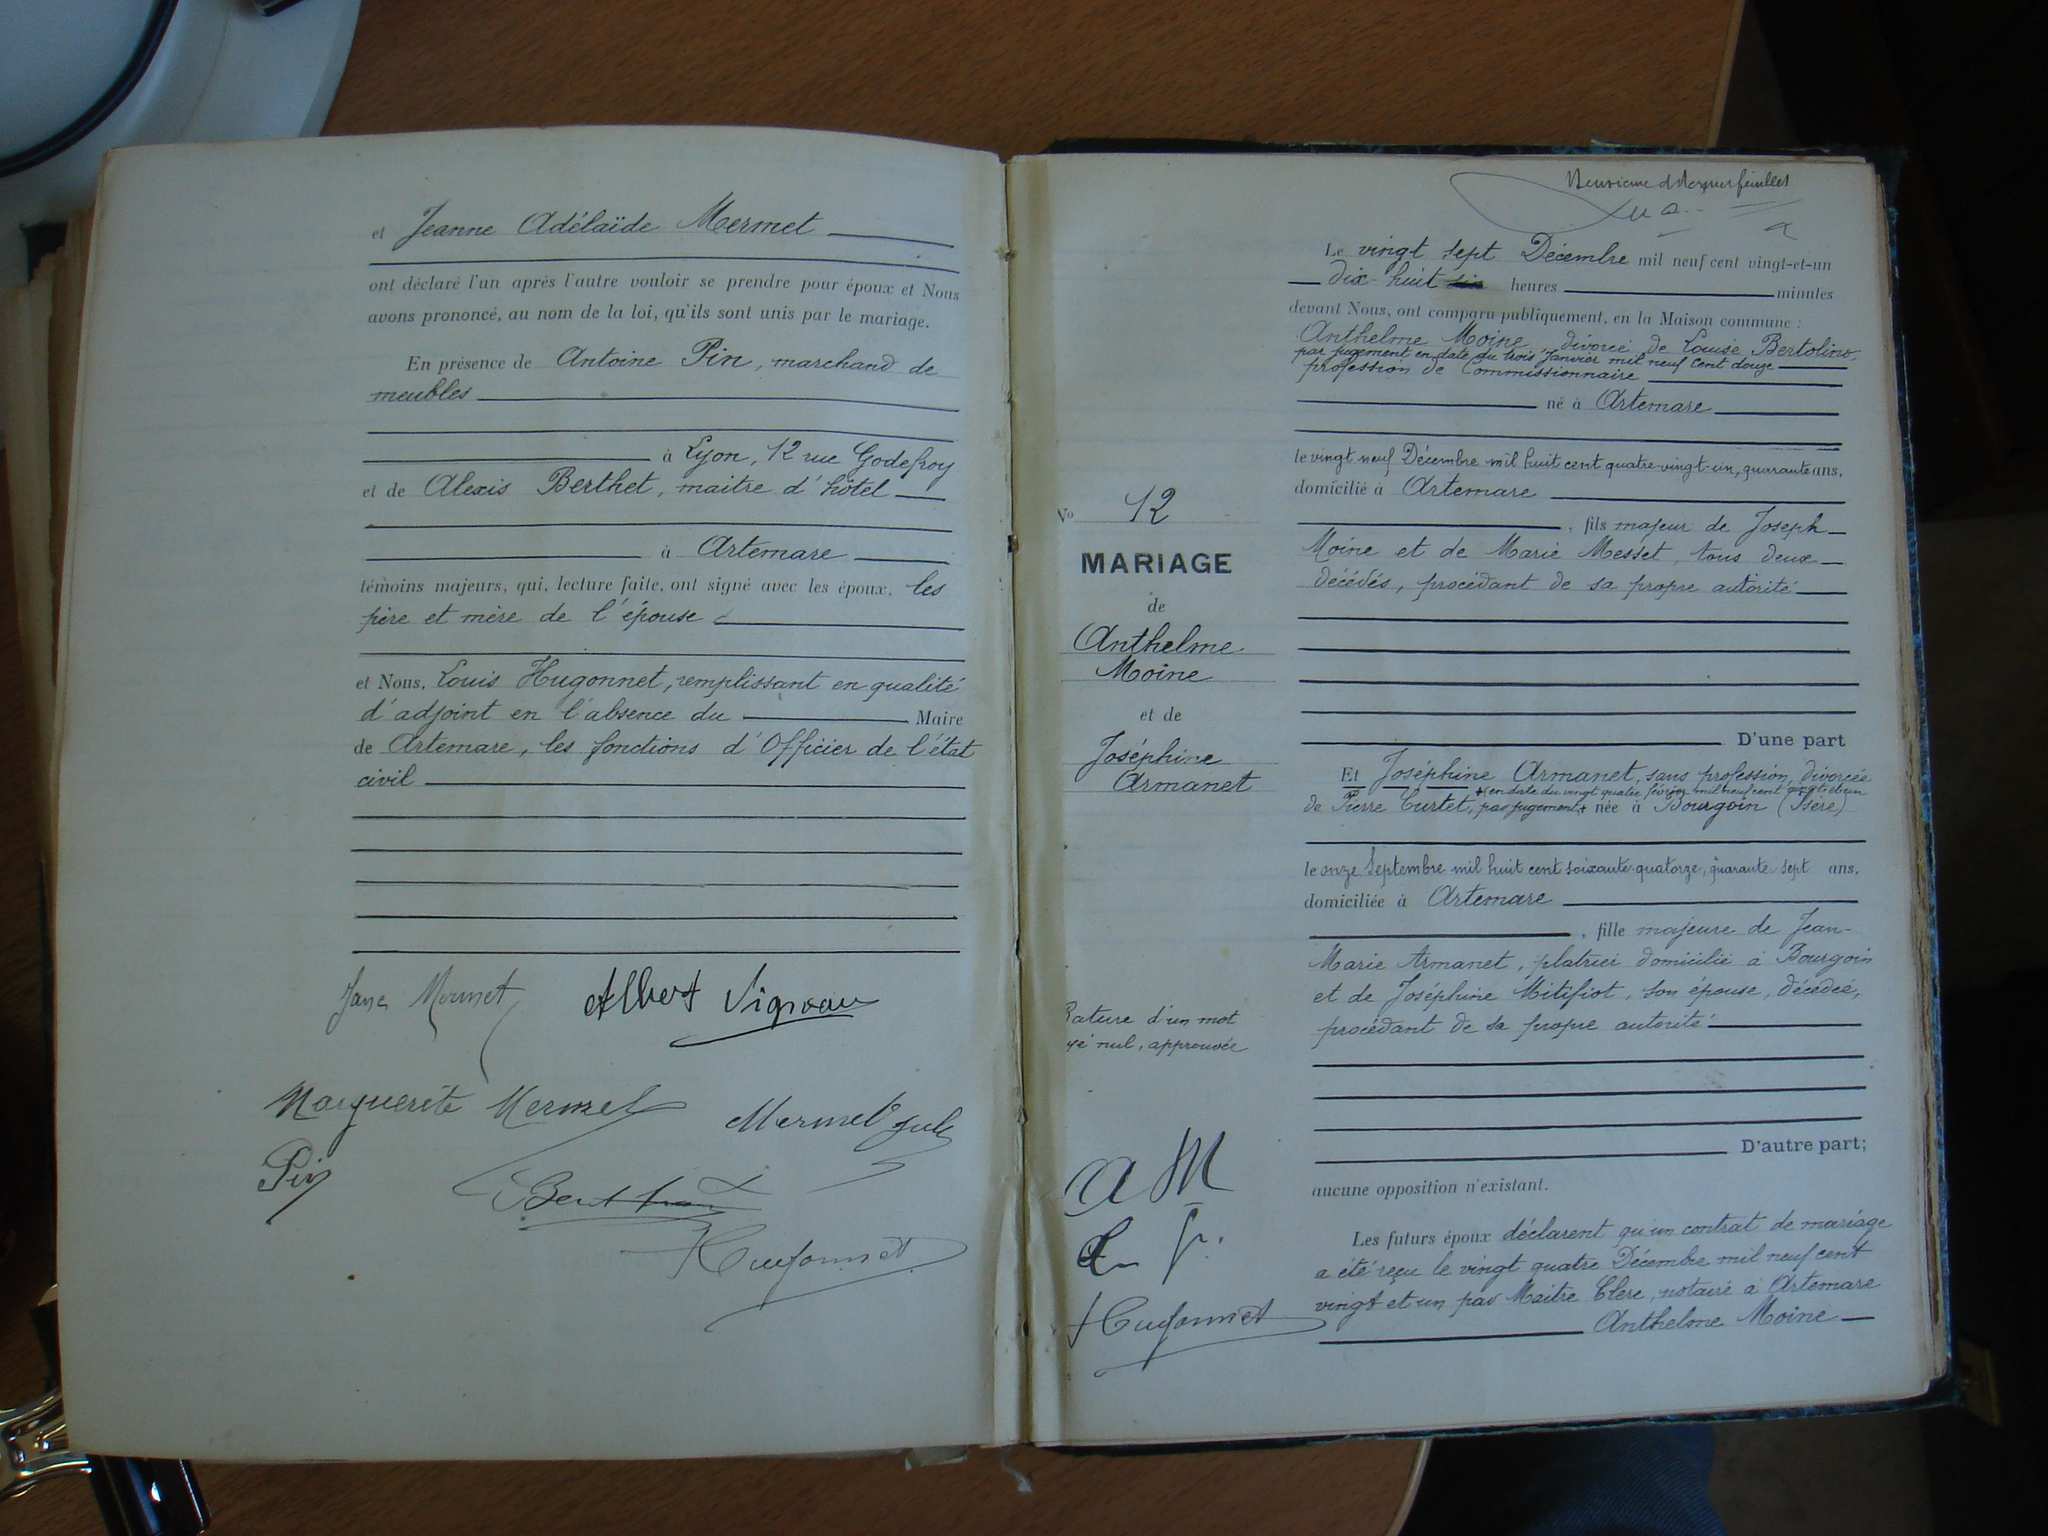 et Jeanne Adélaïde Mermet
ont déclaré l'un après l'autre vouloir se prendre pour époux et Nous
avons prononcé, au nom de la loi, qu'ils sont unis par le mariage.
En présence de Antoine Pin, marchand de
meubles
à Lyon, 12 rue Godefroy
et de Alexis Berthet, maitre d'hôtel
à Artemare
témoins majeurs, qui, lecture faite, ont signé avec les époux, les
père et mère de l'épouse
et Nous, Louis Hugonnet, remplissant en qualité
d'adjoint en l'absence du Maire
de Artemare, les fonctions d'Officier de l'état
civil
Jane Mermet Albert Vignau
Marguerite Mermet Mermet
Pin
Hugonnet
feuillet
Le vingt sept Décembre mil neuf cent vingt-et-un
dix-huit heures minutes
devant Nous, ont comparu publiquement, en la Maison commune :
Anthelme Moine, divorcé de Louise Bertolino,
par jugement en date du trois Janvier mil neuf cent douze
profession de Commissionnaire
né à Artemare
le vingt neuf Décembre mil huit cent quatre-vingt-un, quarante ans,
domicilié à Artemare
, fils majeur de Joseph
Moine et de Marie Messet, tous deux
décédés, procédant de sa propre autorité
D'une part
Et Joséphine Armanet, sans profession, divorcée
+ (en date du vingt quatre février mil neuf cent vingt et un
de Pierre Curtet, par jugement + née à Bourgoin (Isère)
le onze Septembre mil huit cent soixante-quatorze, quarante sept ans,
domiciliée à Artemare
, fille majeure de Jean-
Marie Armanet, platrier domicilié à Bourgoin
et de Joséphine Mitifiot, son épouse, décédée,
procédant de sa propre autorité
D'autre part;
aucune opposition n'existant.
Les futurs époux déclarent qu'un contrat de mariage
a été reçu le vingt quatre Décembre mil neuf cent
vingt et un par Maitre Clerc, notaire à Artemare
Anthelme Moine
No 12
MARIAGE
de
Anthelme
Moine
et de
Joséphine
Armanet
Rature d'un mot
yé nul, approuvée
A M
Hugonnet